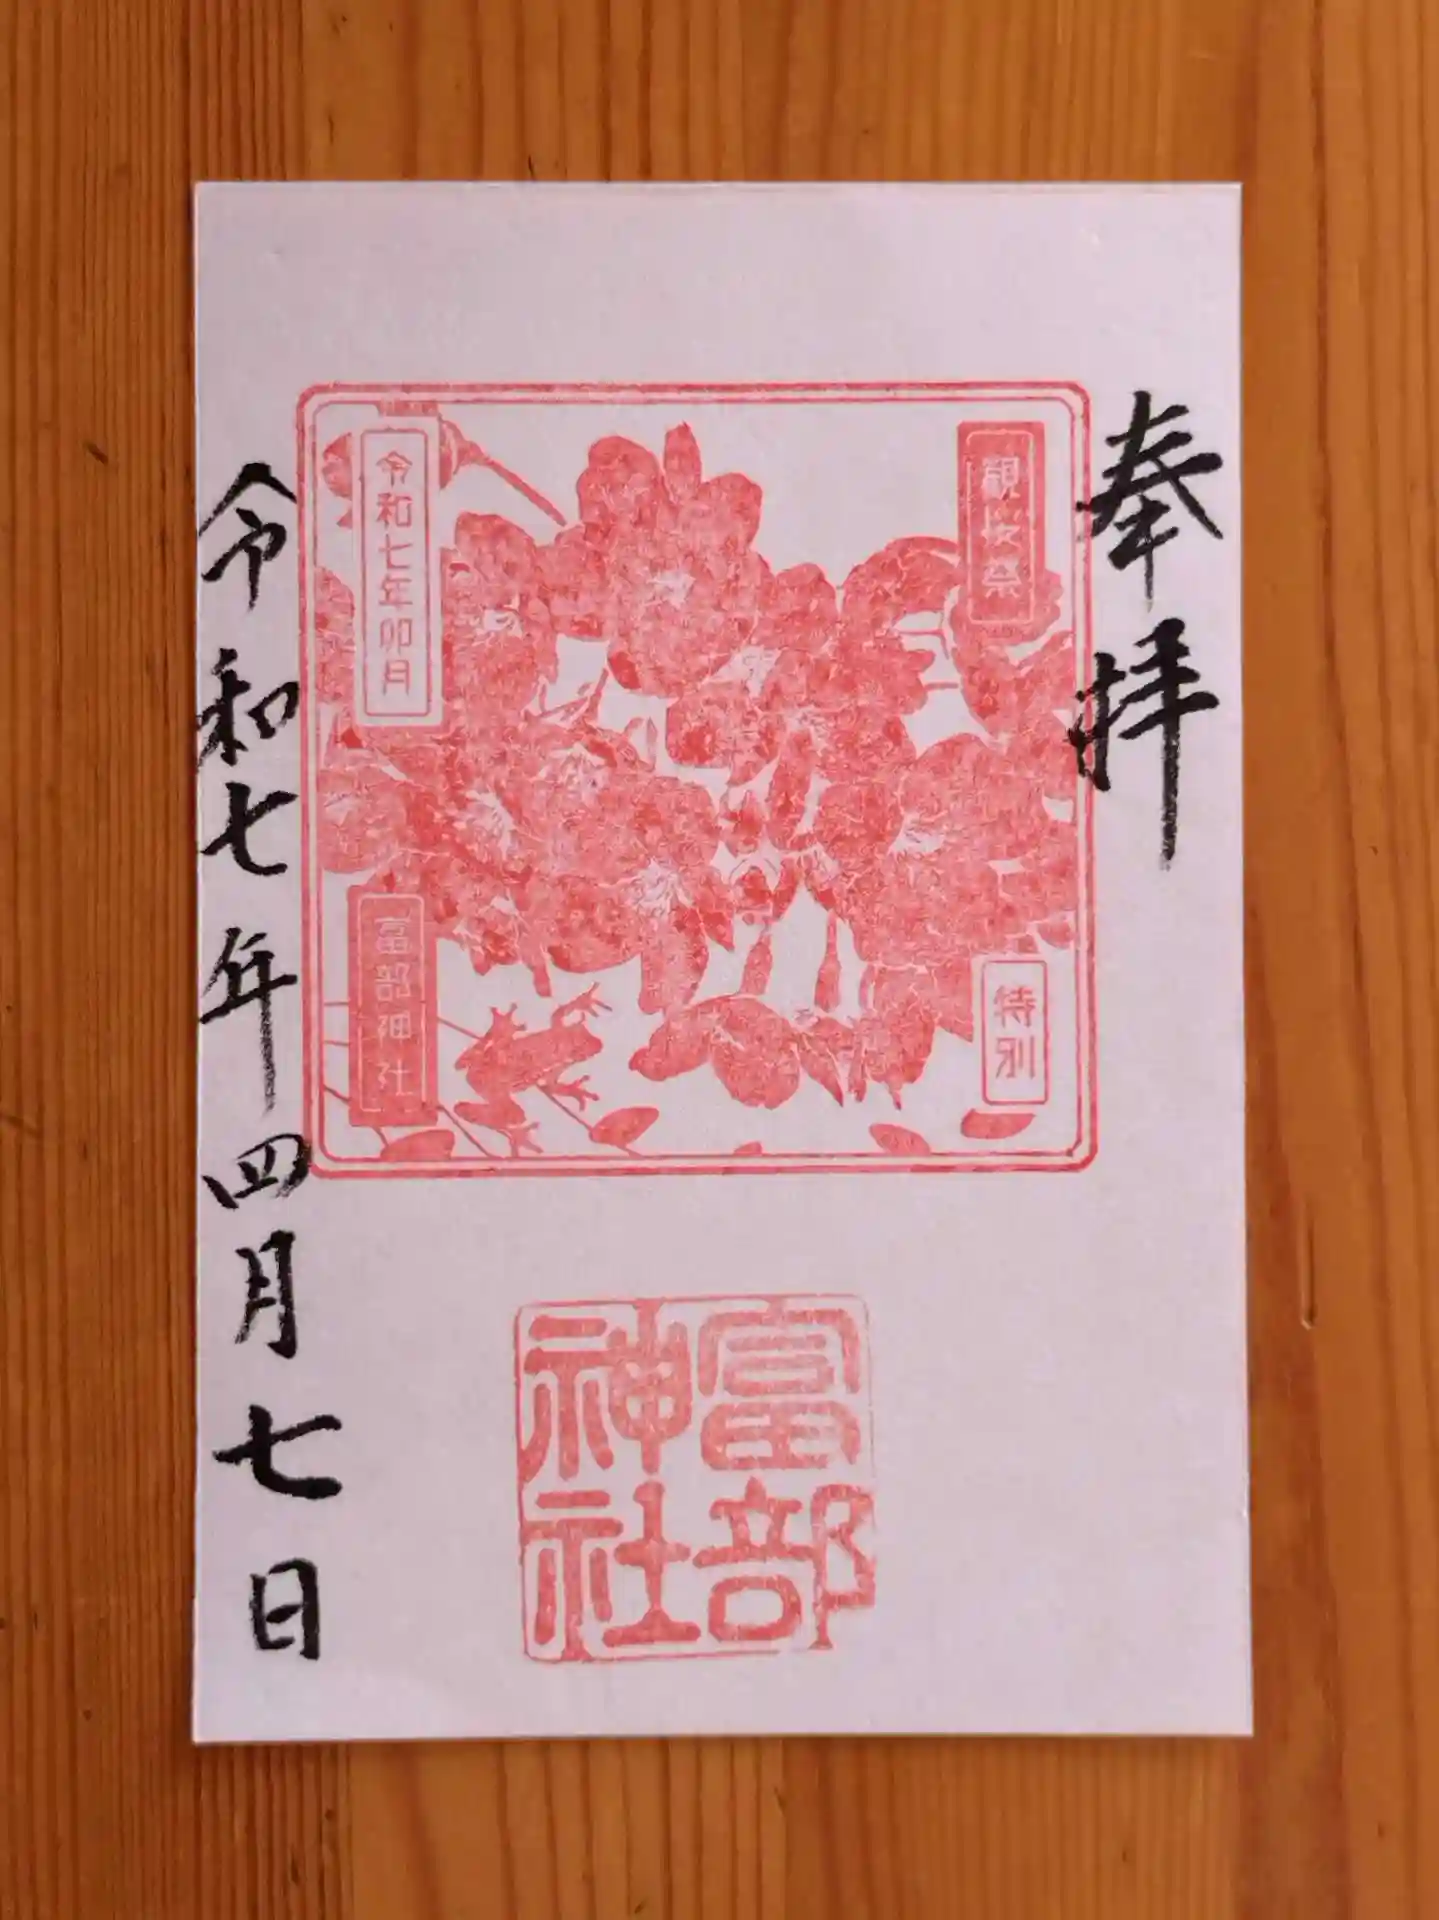 奉拝
観桜祭
特別
令和七年卯月
富部神社
富部
神社
令和七年四月七日